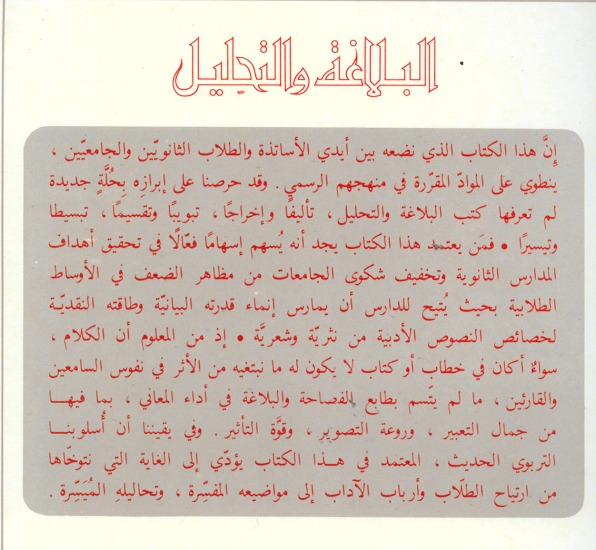 البلاغة والتحليل
إنَّ هذا الكتاب الذي نضعه بين أيدي الأساتذة والطلاب الثانويّين والجامعيّين ،
ينطوي على الموادّ المقرّرة في منهجهم الرسمي . وقد حرصنا على إبرازِه بِحُلَّةٍ جديدة
لم تعرفها كتب البلاغة والتحليل ، تأليفًا وإخراجًا، تبويبًا وتقسيمًا، تبسيطا
وتيسيرًا • فمَن يعتمد هذا الكتاب يجد أنه يُسهم إسهامًا فعّالًا في تحقيق أهداف
المدارس الثانوية وتخفيف شكوى الجامعات من مظاهر الضعف في الأوساط
الطلابية بحيث يُتيح للدارس أن يمارس إنماء قدرته البيانيّة وطاقته النقديّة
لخصائص النصوص الأدبية من نثريّة وشعريَّة • إذ من المعلوم أن الكلام ،
سواءٌ أكان في خطاب أو كتاب لا يكون له ما نبتغيه من الأثر في نفوس السامعين
والقارئين ، ما لم يتّسم بطابع الفصاحة والبلاغة في أداء المعاني ، بما فيها
من جمال التعبير ، وروعة التصوير ، وقوَّة التأثير . وفي يقيننا أن أُسلوبنا
التربوي الحديث ، المعتمد في هذا الكتاب يؤدّي إلى الغاية التي نتوخّاها
من ارتياح الطلّاب وأرباب الآداب إلى مواضيعه المفسِّرة ، وتحاليلهِ المُيَسِّرة .